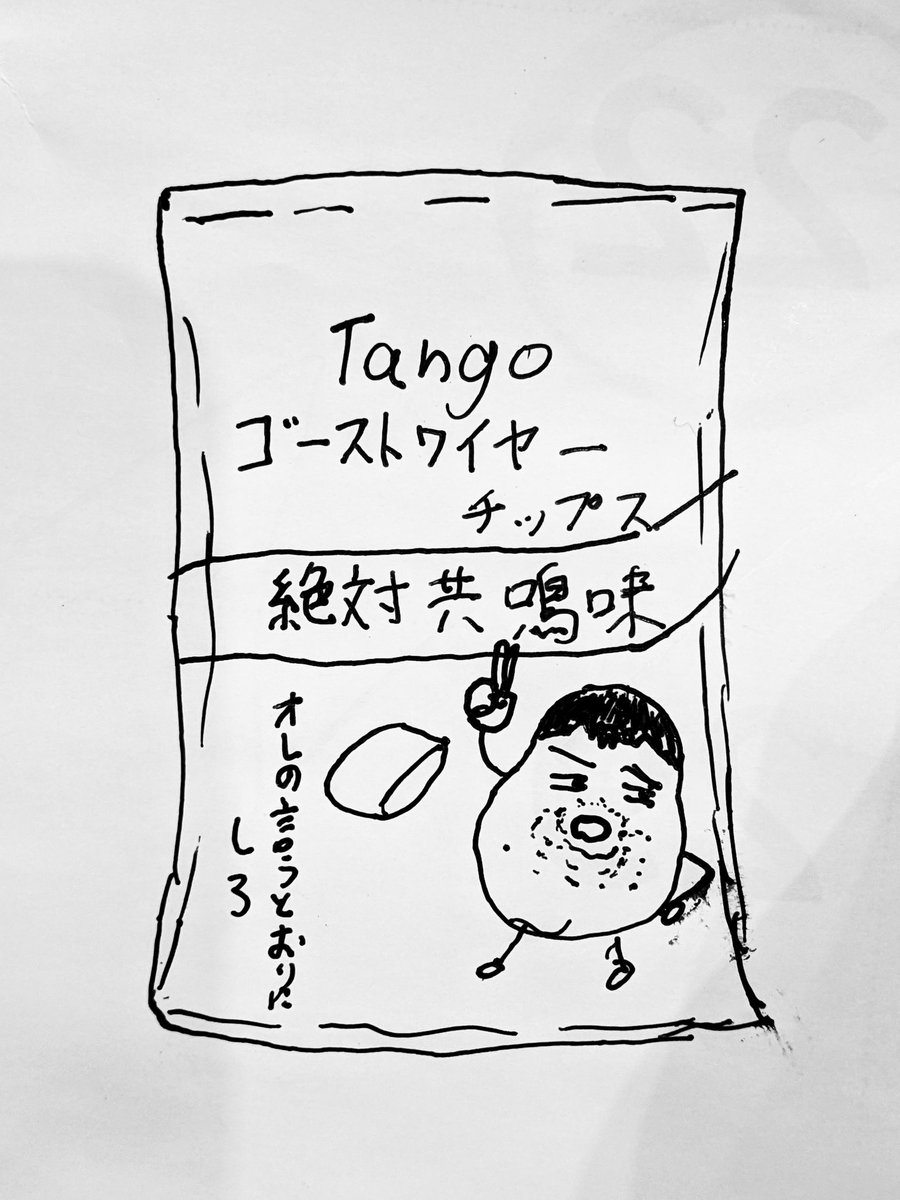 Tango
ゴーストワイヤー
チップス
絶対共鳴味
オレの言うとおりに
しろ